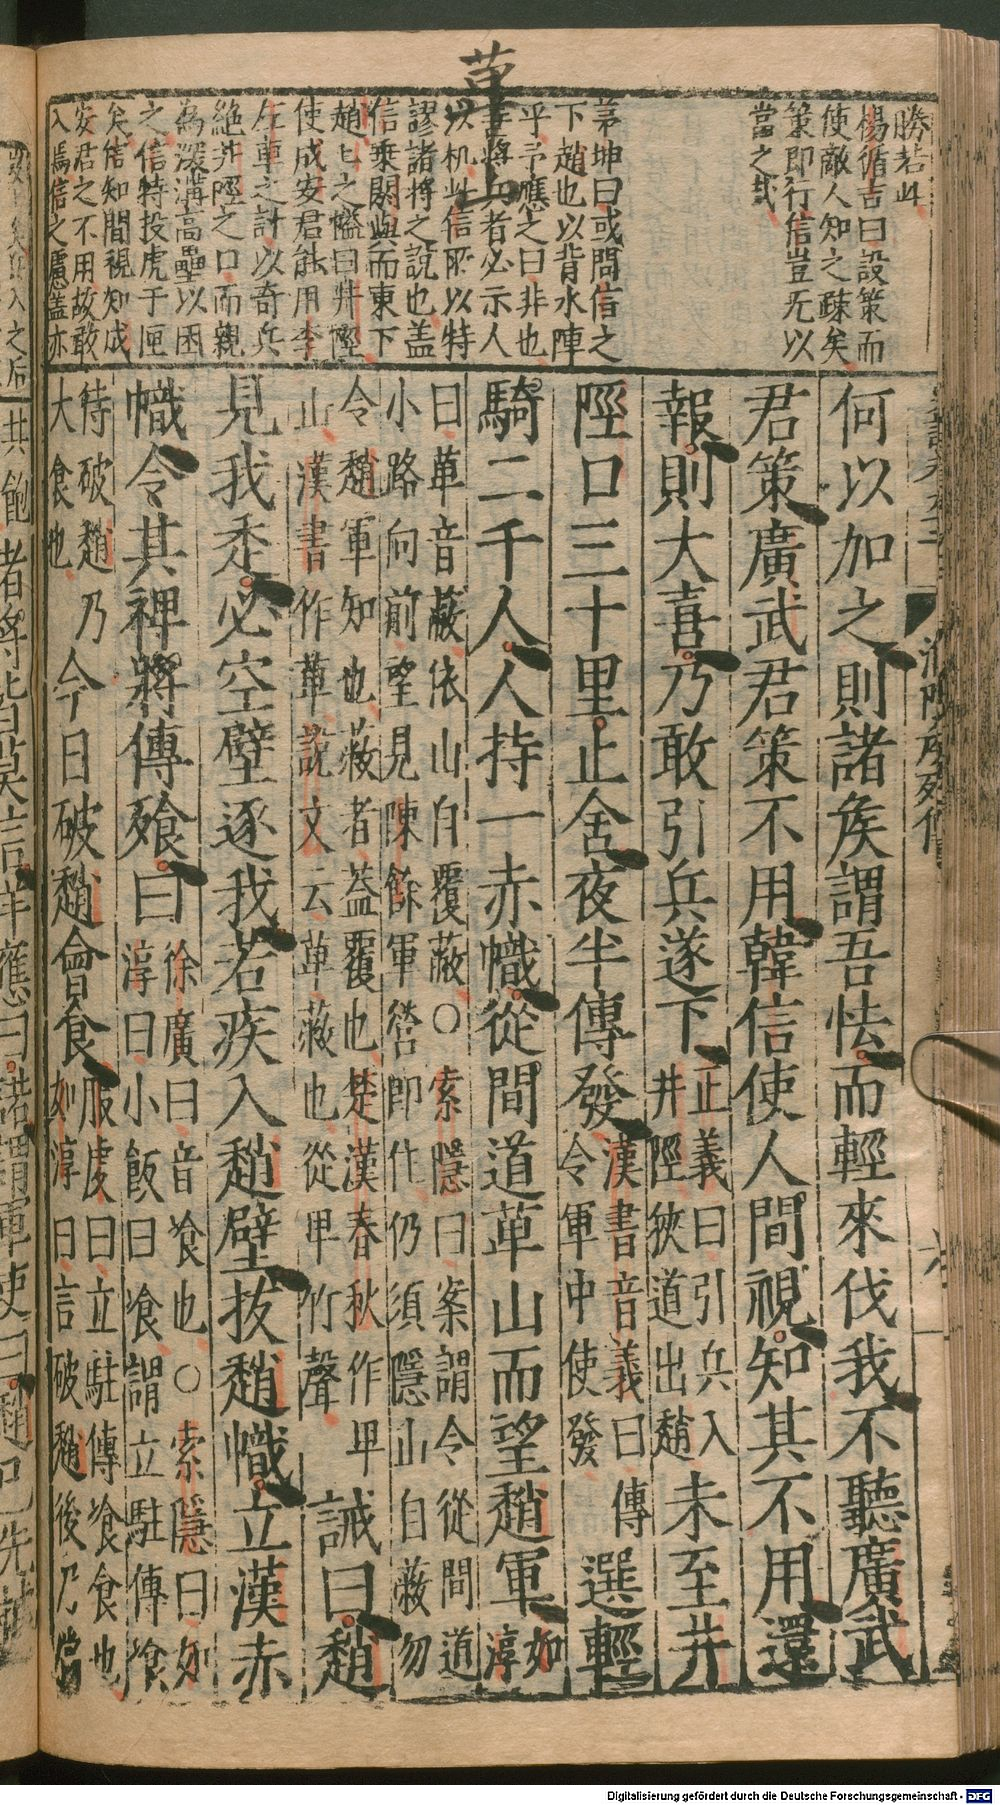 萆
勝若此
楊循吉曰設策而
使敵人知之疎矣
策即行信豈旡以
當之哉
茅坤曰或問信之
下趙也以背水陣
乎予應之曰非也
善將兵者必示人
以机此信所以特
謬諸將之說也盖
信乗閼與而東下
趙匕之嗌曰井陘
使成安君能用李
左車之計以奇兵
絶井陘之口而親
為深溝高壘以困
之信特投虎于匣
矣信知間視知成
安君之不用故敢
入焉信之慮盖亦
何以加之則諸矦謂吾怯而輕來伐我不聽廣武
君策廣武君策不用韓信使人間視知其不用還
報則大喜乃敢引兵遂下
正義曰引兵入
井陘狹道出趙
未至井
陘口三十里止舍夜半傳發
漢書音義曰傳
令軍中使發
選輕
騎二千人人持一赤幟從間道萆山而望趙軍
如
淳
曰萆音蔽依山自覆蔽○索隱曰案謂令從間道
小路向前望見陳餘軍營即作仍須隱山自蔽勿
令趙軍知也蔽者葢覆也楚漢春秋作卑
山漢書作萆說文云萆蔽也從甲竹聲
誡曰趙
見我走必空壁逐我若疾入趙壁拔趙幟立漢赤
幟令其裨將傳飱曰
徐廣曰音飡也○索隱曰如
淳曰小飯曰飡謂立駐傳飡
待破趙乃
大食也
今日破趙會食
服虔曰立駐傳飡食也
如淳曰言破趙後乃當
共飽
諸將皆莫信詳應曰諾謂軍吏曰趙已先
淮陰矦列傳
Digitalisierung gefördert durch die Deutsche Forschungsgemeinschaft - DFG